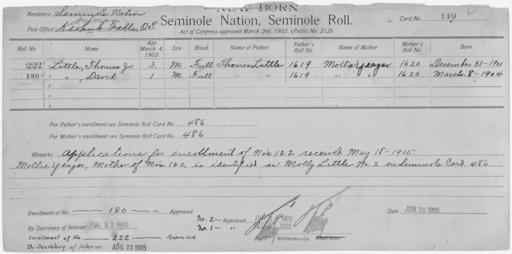 NEW BORN
Residence Seminole Nation
Seminole Nation, Seminole Roll.
Post Office Keokuk Falls, O.T.
Card No. 149
Act of Congress approved March 3rd, 1905. (Public No. 212).
Roll No. Name Age March 4, 1905. Sex. Blood. Name of Father. Father's Roll No. Name of Mother Mother's Roll No. Born.
222 Little, Thomas Jr. 3 M Full Thomas Little 1619 Mollie Yeagor 1620 December 31-1901
180 " , David 1 M Full " 1619 " " 1620 March 8-1904
For Father's enrollment see Seminole Roll Card No. 486
For Mother's enrollment see Seminole Roll Card No. 486
Remarks Applications for enrollment of Nos 1&2 received May 18-1905.
Mollie Yeagor, Mother of Nos 1&2 is identified as Molly Little No. 2 on Seminole Card 486
Enrollment of No. 180 Approved
by Secretary of Interior JUL 22 1905
No. 2- Approved
No. 1- "
Enrollment of No 222 Approved
By Secretary of Interior AUG 23 1905
Date JUN 1905